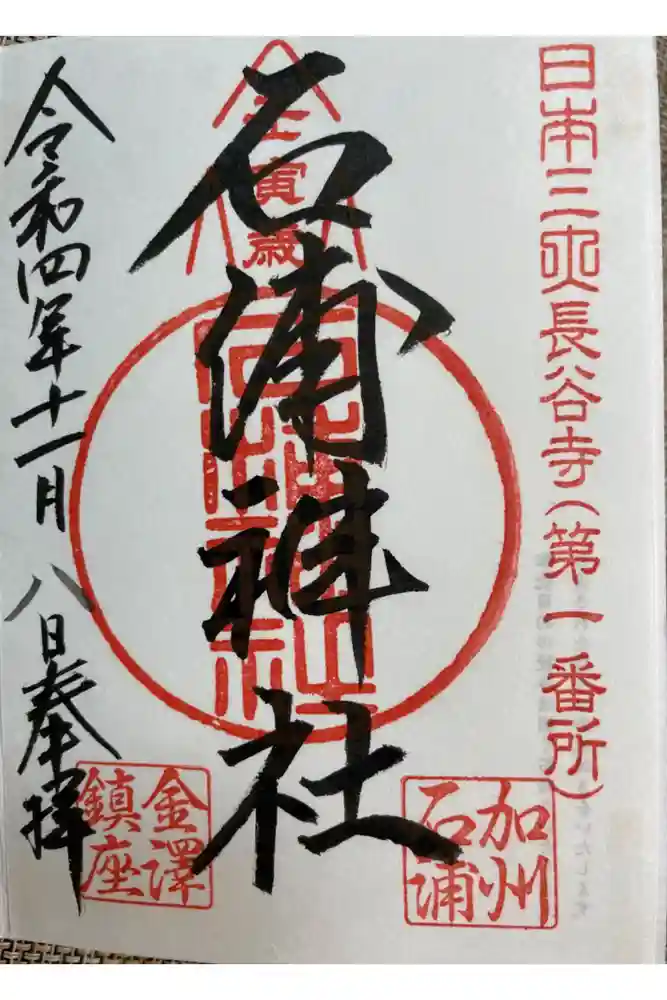 日本三大長谷寺(第一番所)
加州
石浦
壬寅歳
石浦神社
金澤
鎮座
令和四年十一月八日奉拝